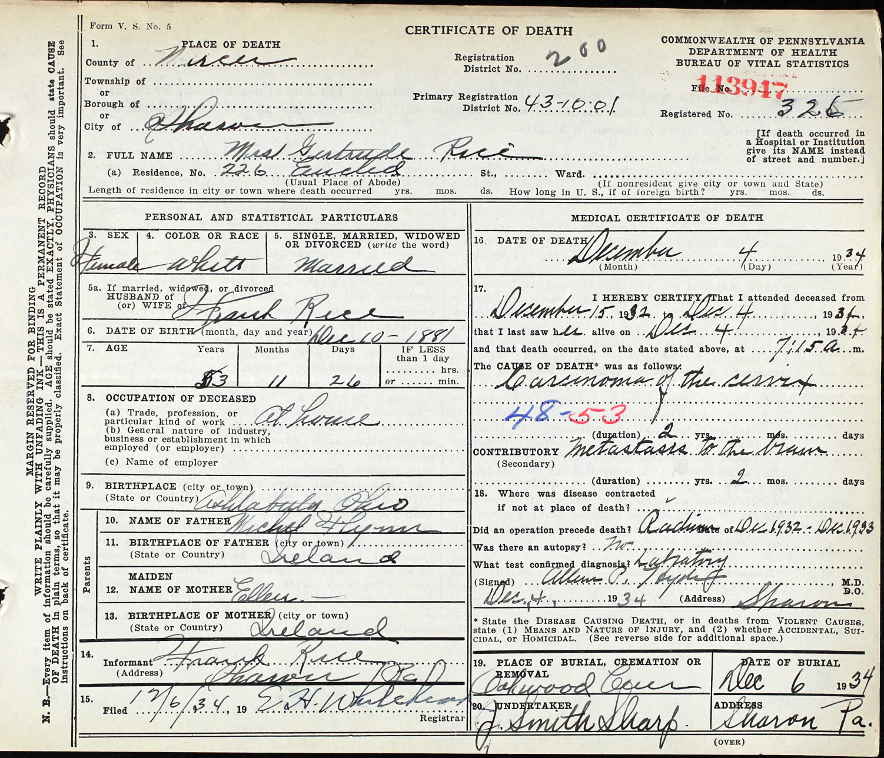 Form V. S. No. 5
CERTIFICATE OF DEATH
COMMONWEALTH OF PENNSYLVANIA
DEPARTMENT OF HEALTH
BUREAU OF VITAL STATISTICS
1. PLACE OF DEATH
County of Mercer
Township of
or
Borough of
or
City of Sharon
Registration District No. 200
Primary Registration District No. 43-10-01
File No. 113947
Registered No. 325
[If death occurred in a Hospital or Institution give its NAME instead of street and number.]
2. FULL NAME Mrs Gertrude Rice
(a) Residence, No. 226 St., Ward.
(Usual Place of Abode) (If nonresident give city or town and State)
Length of residence in city or town where death occurred yrs. mos. ds. How long in U. S., if of foreign birth? yrs. mos. ds.
MARGIN RESERVED FOR BINDING
WRITE PLAINLY WITH UNFADING INK—THIS IS A PERMANENT RECORD
N. B.—Every item of information should be carefully supplied. AGE should be stated EXACTLY. PHYSICIANS should state CAUSE OF DEATH in plain terms, so that it may be properly classified. Exact Statement of OCCUPATION is very important. See instructions on back of certificate.
PERSONAL AND STATISTICAL PARTICULARS
3. SEX
Female
4. COLOR OR RACE
White
5. SINGLE, MARRIED, WIDOWED OR DIVORCED (write the word)
Married
5a. If married, widowed, or divorced
HUSBAND of
(or) WIFE of Frank Rice
6. DATE OF BIRTH (month, day and year) Dec 10-1881
7. AGE Years Months Days IF LESS than 1 day
53 11 26 hrs. or min.
8. OCCUPATION OF DECEASED
(a) Trade, profession, or particular kind of work At home
(b) General nature of industry, business or establishment in which employed (or employer)
(c) Name of employer
9. BIRTHPLACE (city or town)
(State or Country) Ashtabula Ohio
Parents
10. NAME OF FATHER Michel Flynn
11. BIRTHPLACE OF FATHER (city or town)
(State or Country) Ireland
12. MAIDEN NAME OF MOTHER Ellen —
13. BIRTHPLACE OF MOTHER (city or town)
(State or Country) Ireland
14. Informant Frank Rice
(Address) Sharon Pa
15. Filed 12/6/34, 19 E. H.
Registrar
MEDICAL CERTIFICATE OF DEATH
16. DATE OF DEATH December 4 1934
(Month) (Day) (Year)
17. I HEREBY CERTIFY, That I attended deceased from
December 15, 1932, to Dec 4, 1934
that I last saw her alive on Dec 4, 1934
and that death occurred, on the date stated above, at 7:15 a m.
The CAUSE OF DEATH* was as follows:
Carcinoma of the cervix
48-53
(duration) 2 yrs. mos. days
CONTRIBUTORY Metastasis to the brain
(Secondary)
(duration) yrs. 2 mos. days
18. Where was disease contracted
if not at place of death?
Did an operation precede death? Radium Date of Dec 1932 - Dec 1933
Was there an autopsy? No.
What test confirmed diagnosis? Labratory
(Signed) Allen P. Hyde M.D. D.O.
Dec, 4, 1934 (Address) Sharon
* State the DISEASE CAUSING DEATH, or in deaths from VIOLENT CAUSES, state (1) MEANS AND NATURE OF INJURY, and (2) whether ACCIDENTAL, SUICIDAL, or HOMICIDAL. (See reverse side for additional space.)
19. PLACE OF BURIAL, CREMATION OR REMOVAL
Oakwood Cem
DATE OF BURIAL
Dec 6 1934
20. UNDERTAKER
J. Smith Sharp.
ADDRESS
Sharon Pa.
(OVER)